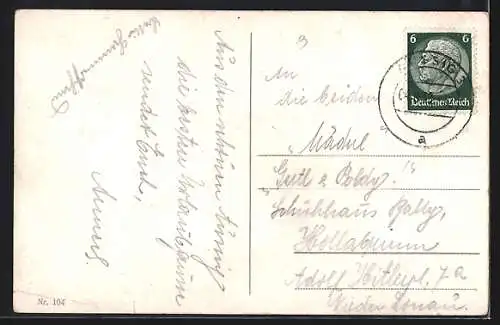 Aus dem schönen Aussig
die besten Urlaubsgrüsse
sendet Euch,
6 6
Deutsches Reich
a
An
die beiden
„Mädel
Gretl & Poldy."
„Schuhhaus Bally,
Hollabrunn
Adolf Hitlerpl. 7a
Nieder Donau.
Nr. 104